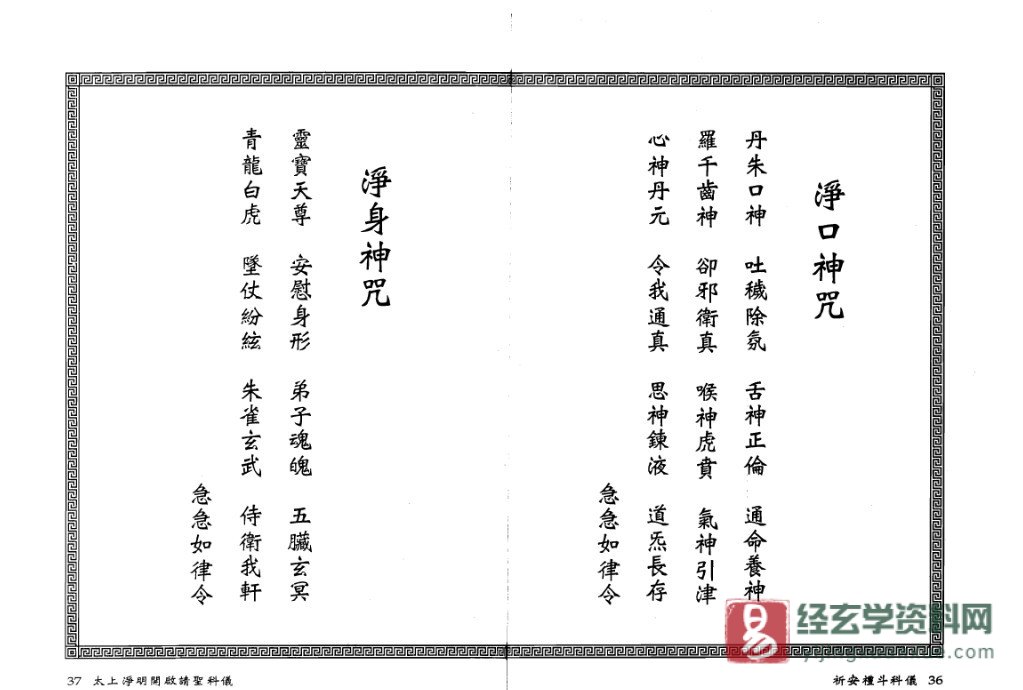 淨口神咒
丹朱口神 吐穢除氛 舌神正倫 通命養神
羅千齒神 卻邪衛真 喉神虎賁 氣神引津
心神丹元 令我通真 思神鍊液 道炁長存
急急如律令
祈安禮斗科儀 36
淨身神咒
靈寶天尊 安慰身形 弟子魂魄 五臟玄冥
青龍白虎 墜仗紛紜 朱雀玄武 侍衛我軒
急急如律令
37 太上淨明開啟請聖科儀
易
经玄学资料网